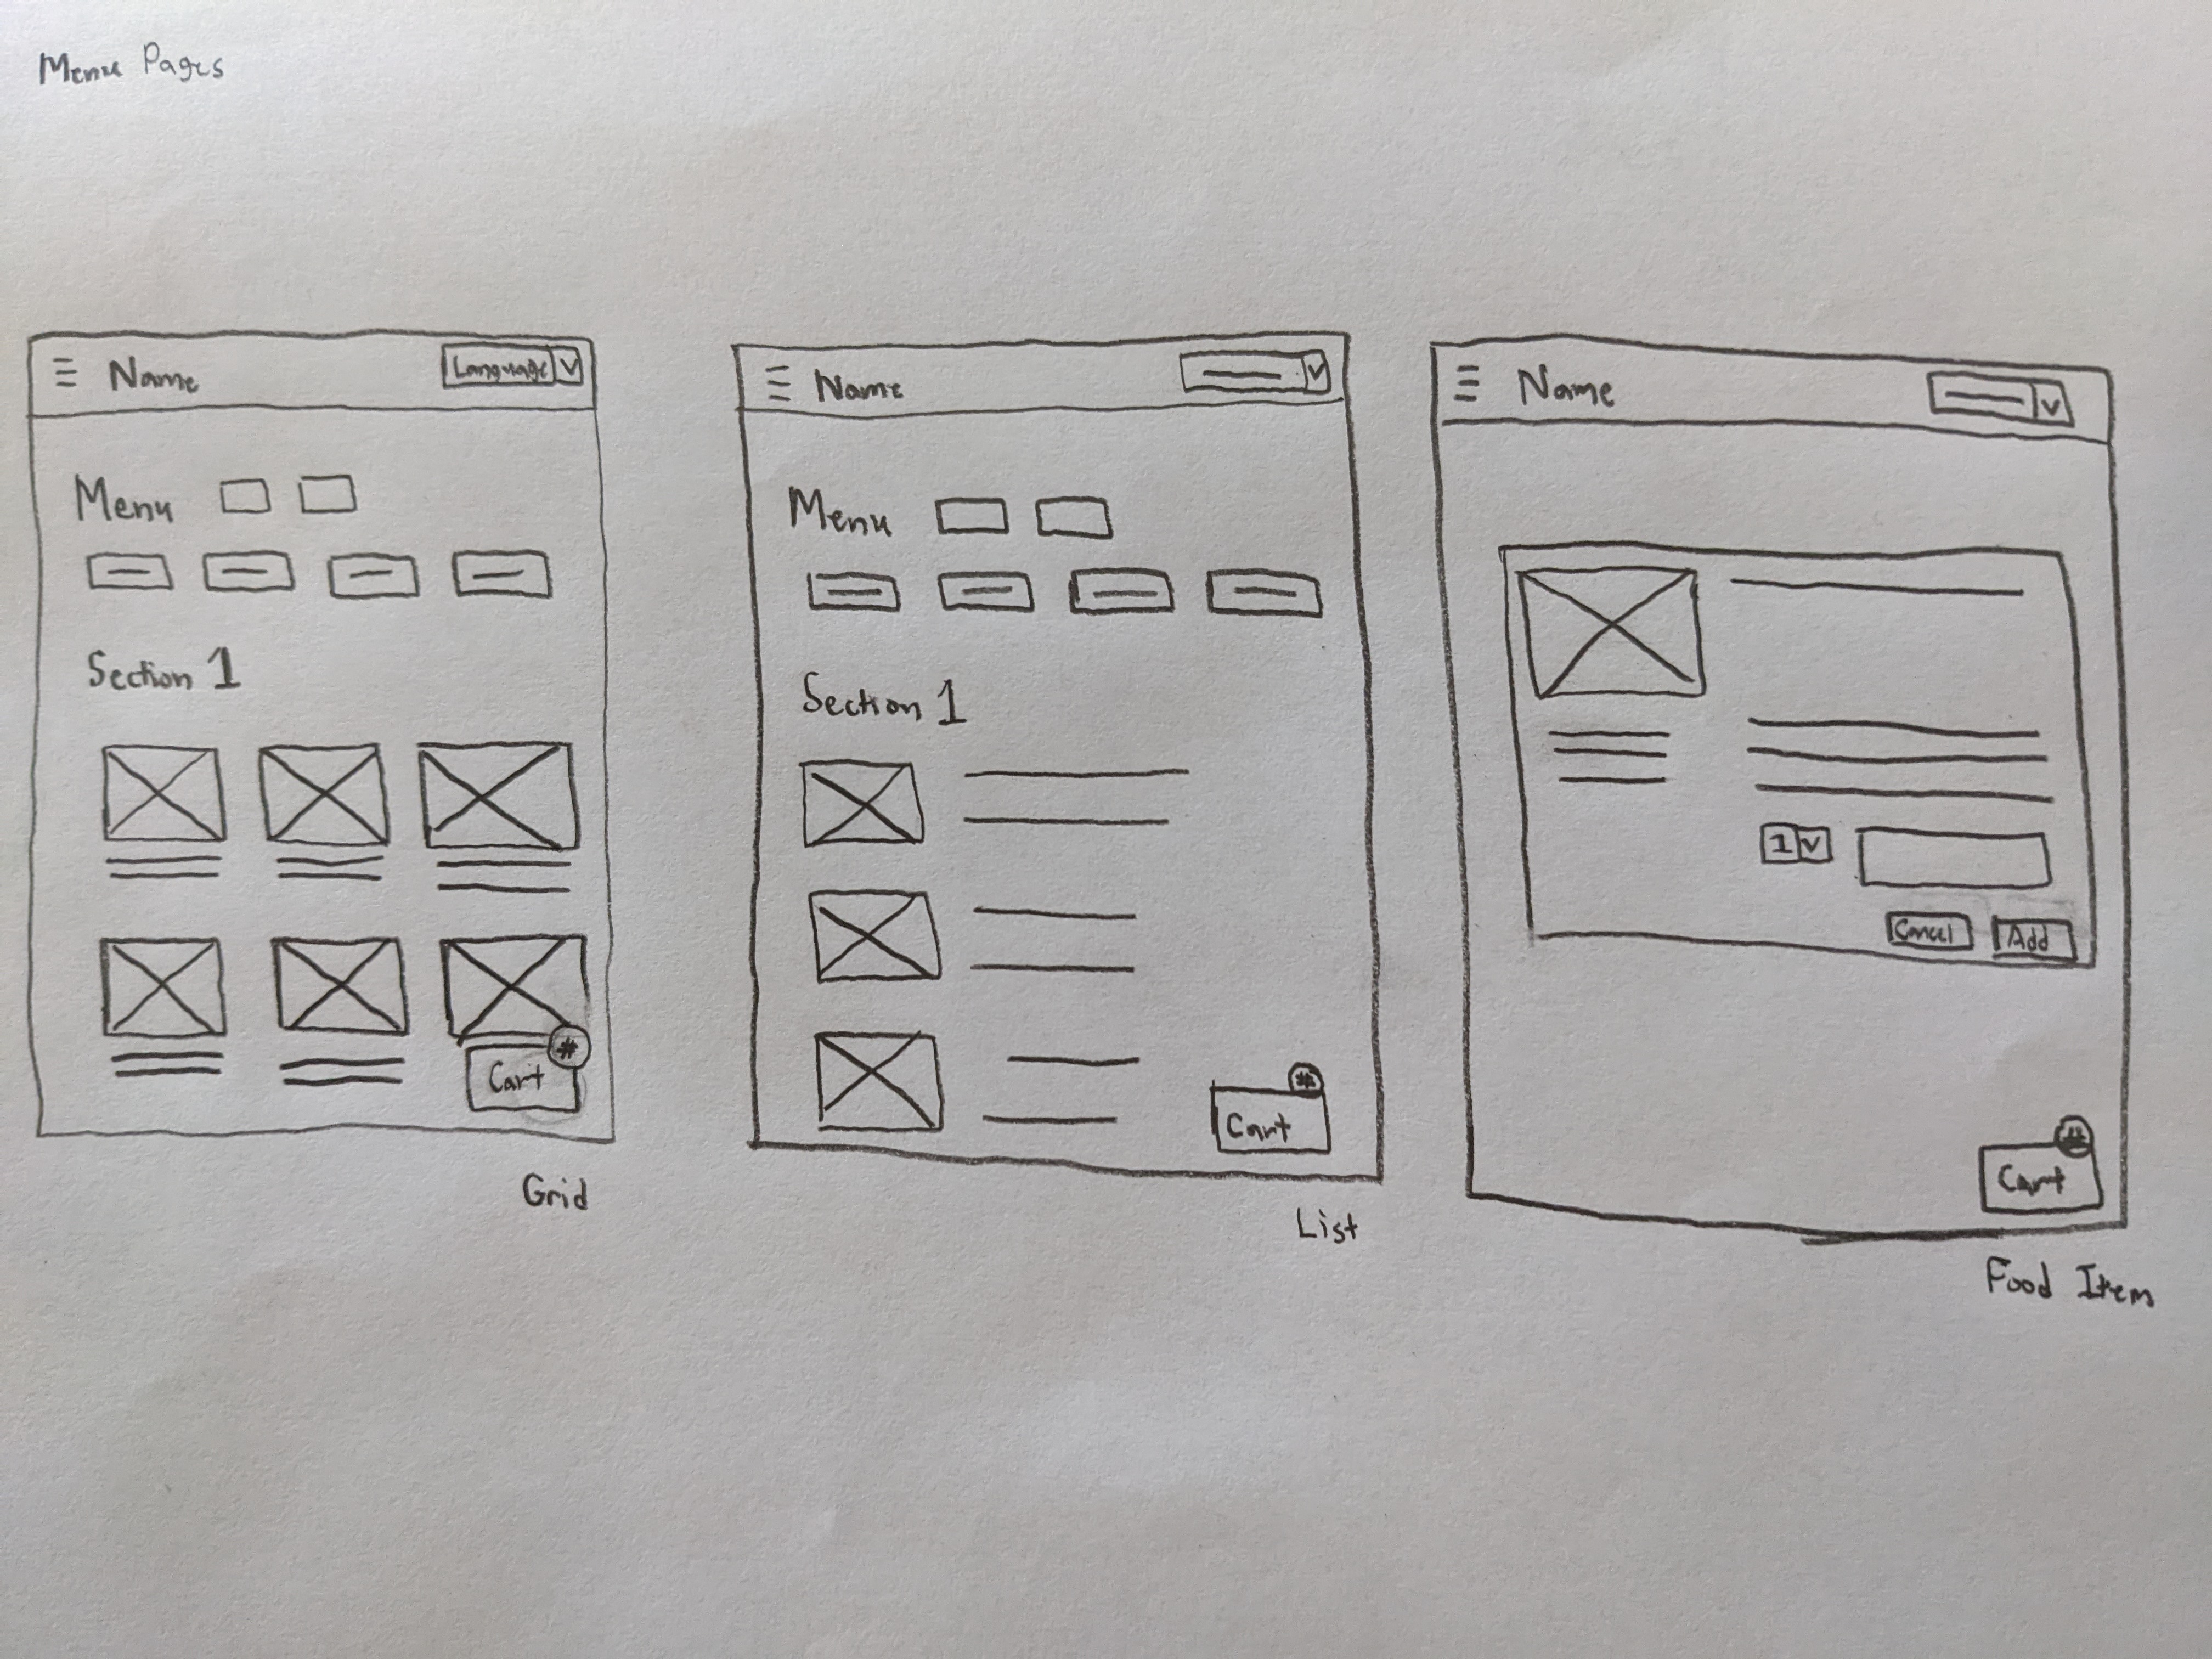 Menu Pages
Name
Language
Menu
Section 1
#
Cart
Grid
Name
Menu
Section 1
#
Cart
List
Name
1
Cancel
Add
#
Cart
Food Item